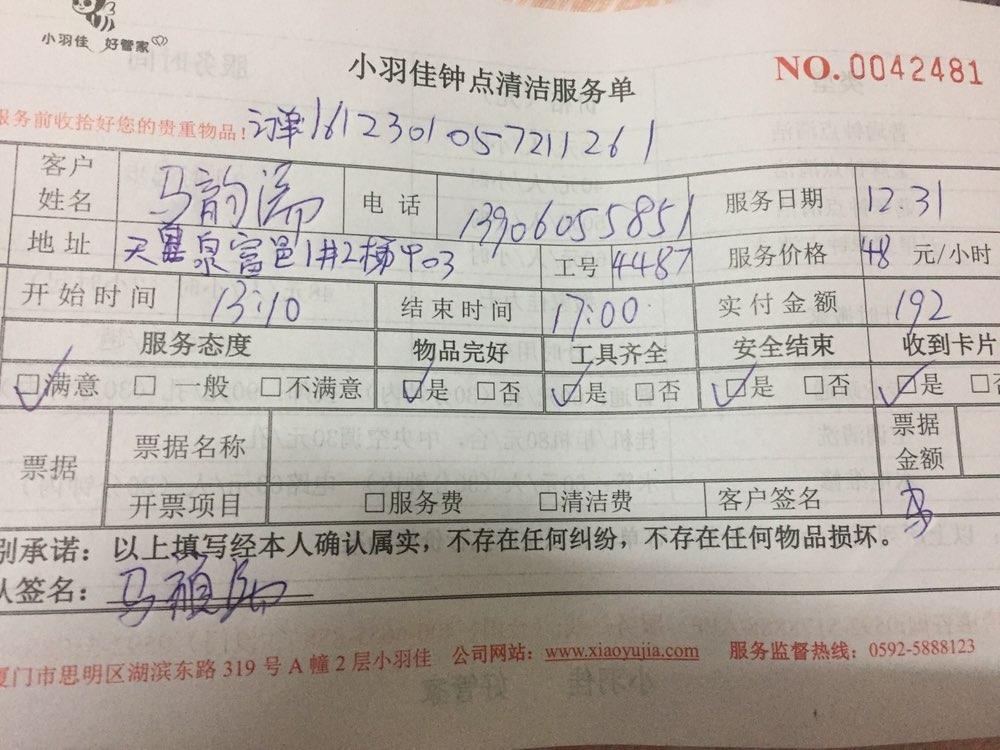 小羽佳 好管家
小羽佳钟点清洁服务单
NO.0042481
服务前收拾好您的贵重物品！ 订单:161230105721261
客户姓名 马韵 电话 13906055851 服务日期 12.31
地址 天 泉富邑1#2梯403 工号 4487 服务价格 48 元/小时
开始时间 13:10 结束时间 17:00 实付金额 192
服务态度 物品完好 工具齐全 安全结束 收到卡片
☑满意 □一般 □不满意 ☑是 □否 ☑是 □否 ☑是 □否 ☑是 □否
票据 票据名称 票据金额
开票项目 □服务费 □清洁费 客户签名 马
别承诺：以上填写经本人确认属实，不存在任何纠纷，不存在任何物品损坏。
人签名： 马
厦门市思明区湖滨东路 319 号 A 幢 2 层小羽佳 公司网站：www.xiaoyujia.com 服务监督热线：0592-5888123